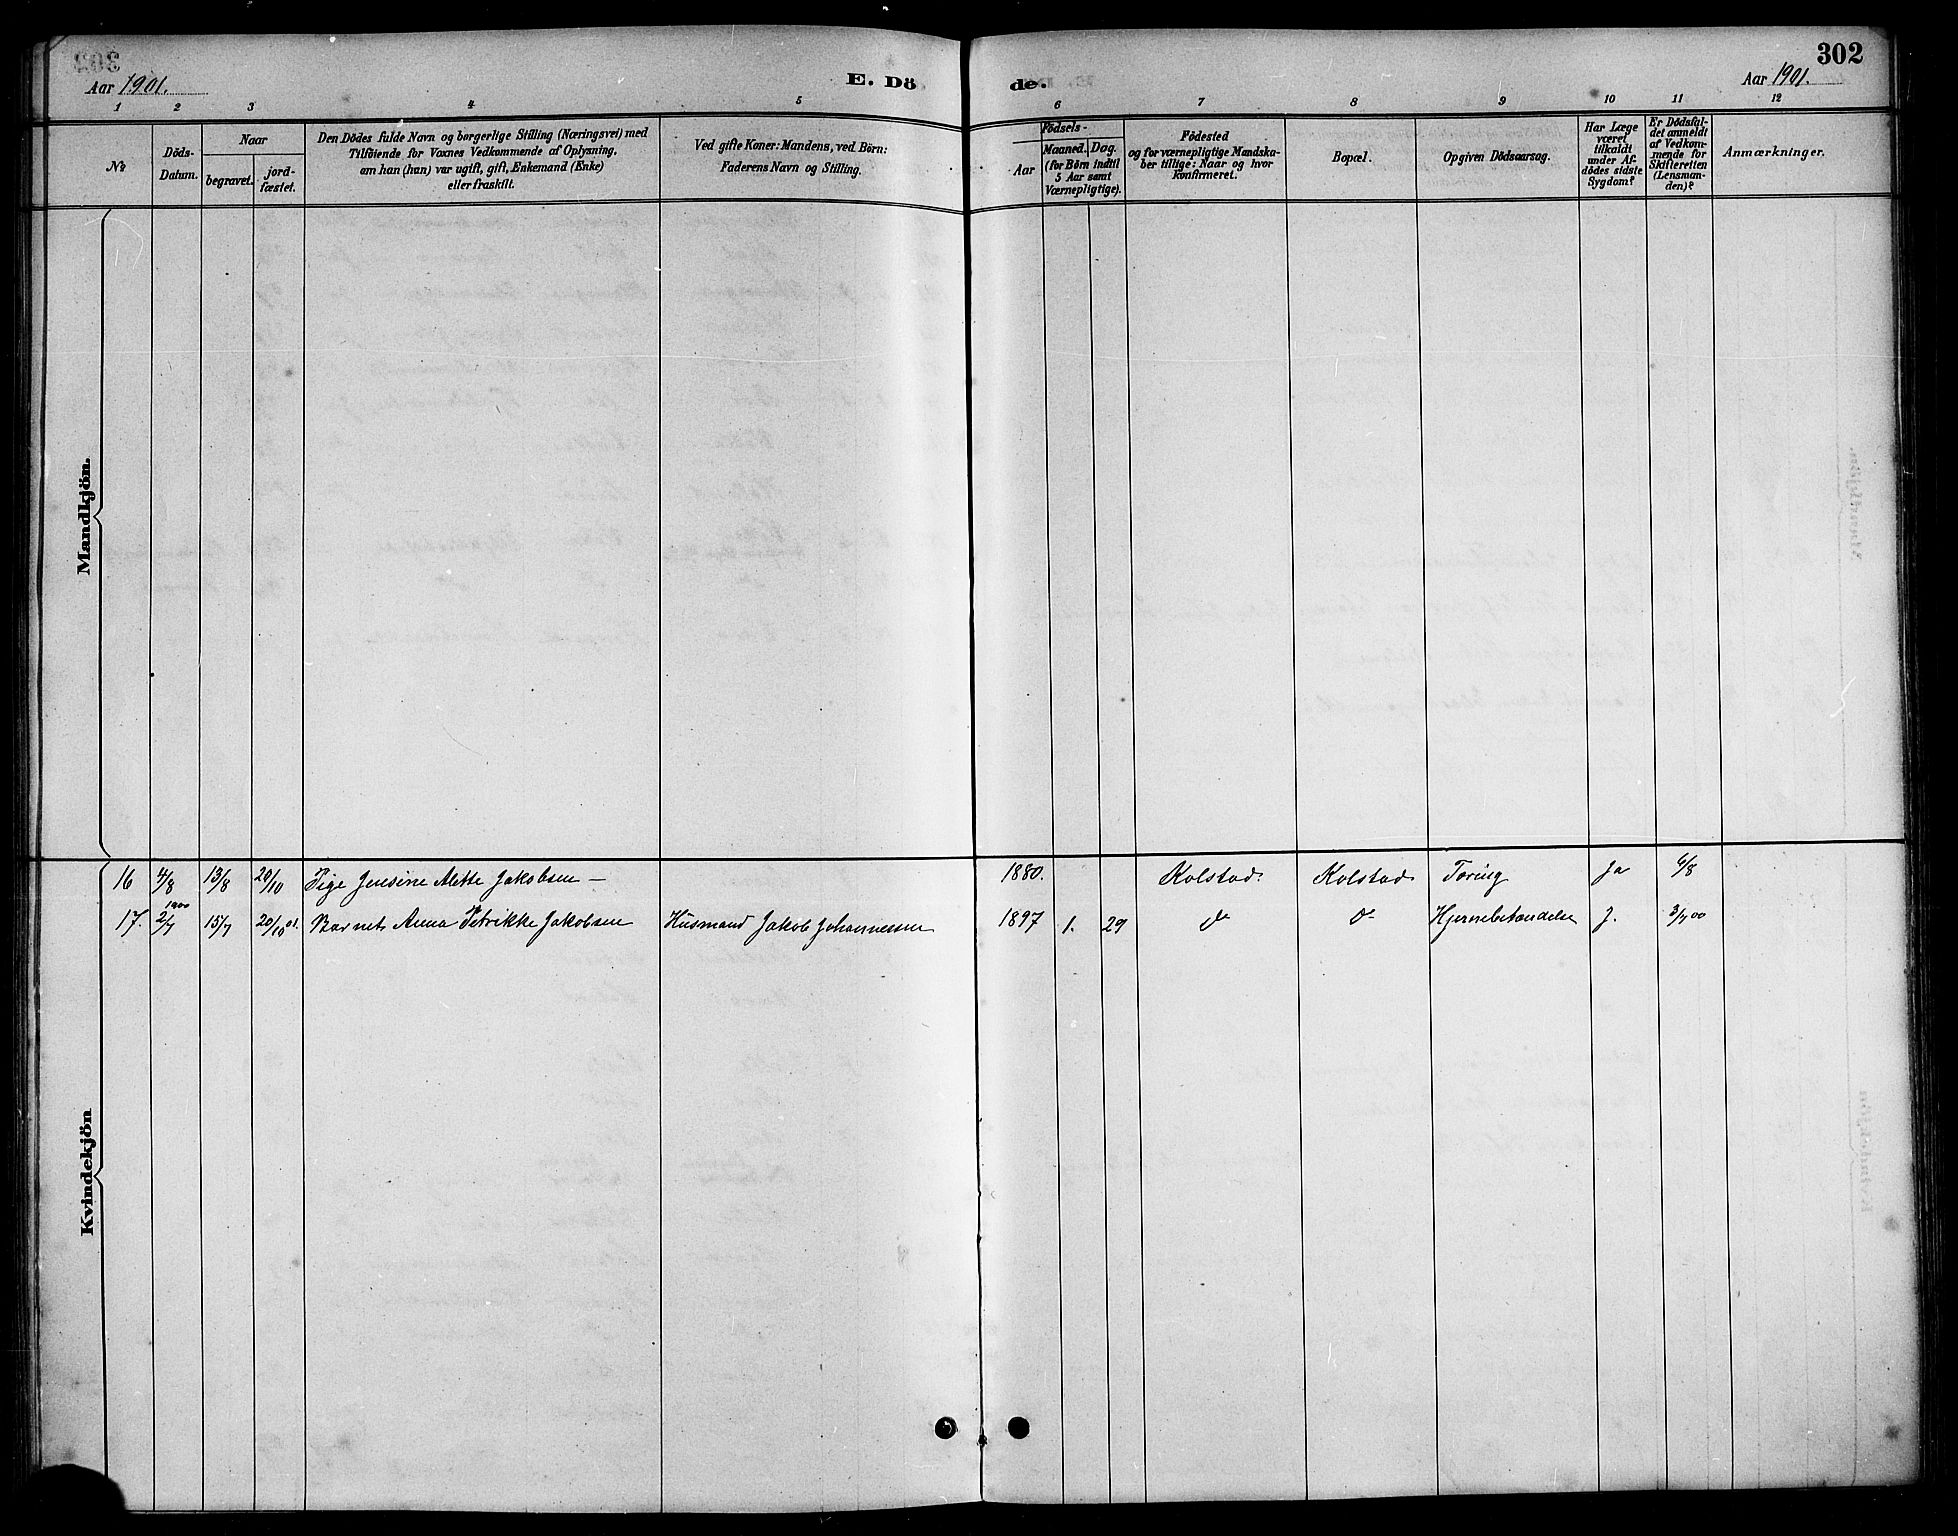 302
Aar 1901. E. Dö de. Aar 1901.
1 2 3 4 5 6 7 8 9 10 11 12
No
Döds-
Datum.
Naar
begravet.
jord-
fæstet.
Den Dödes fulde Navn og borgerlige Stilling (Næringsvei) med
Tilföiende for Voxnes Vedkommende af Oplysning,
om han (hun) var ugift, gift, Enkemand (Enke)
eller fraskilt.
Ved gifte Koner: Mandens, ved Börn:
Faderens Navn og Stilling.
Födsels-
Aar
Maaned. Dag.
(for Börn indtil
5 Aar samt
Værnepligtige).
Födested
og for værnepligtige Mandska-
ber tillige: Naar og hvor
konfirmeret.
Bopæl.
Opgiven Dödsaarsag.
Har Læge
været
tilkaldt
under Af-
dödes sidste
Sygdom?
Er Dödsfal-
det anmeldt
af Vedkom-
mende for
Skifteretten
(Lensman-
den)?
Anmærkninger.
Mandkjön.
16 4/8 13/8 20/10 Pige Jensine Mette Jakobsen — 1880. Kolstad. Kolstad Tæring Ja 6/8
1900
17. 2/7 15/7 20/10 01. Barnet Anna Petrikke Jakobsen Husmand Jakob Johannessen 1897 1. 29 do do Hjernebetændelse J. 3/7 00
Kvindekjön